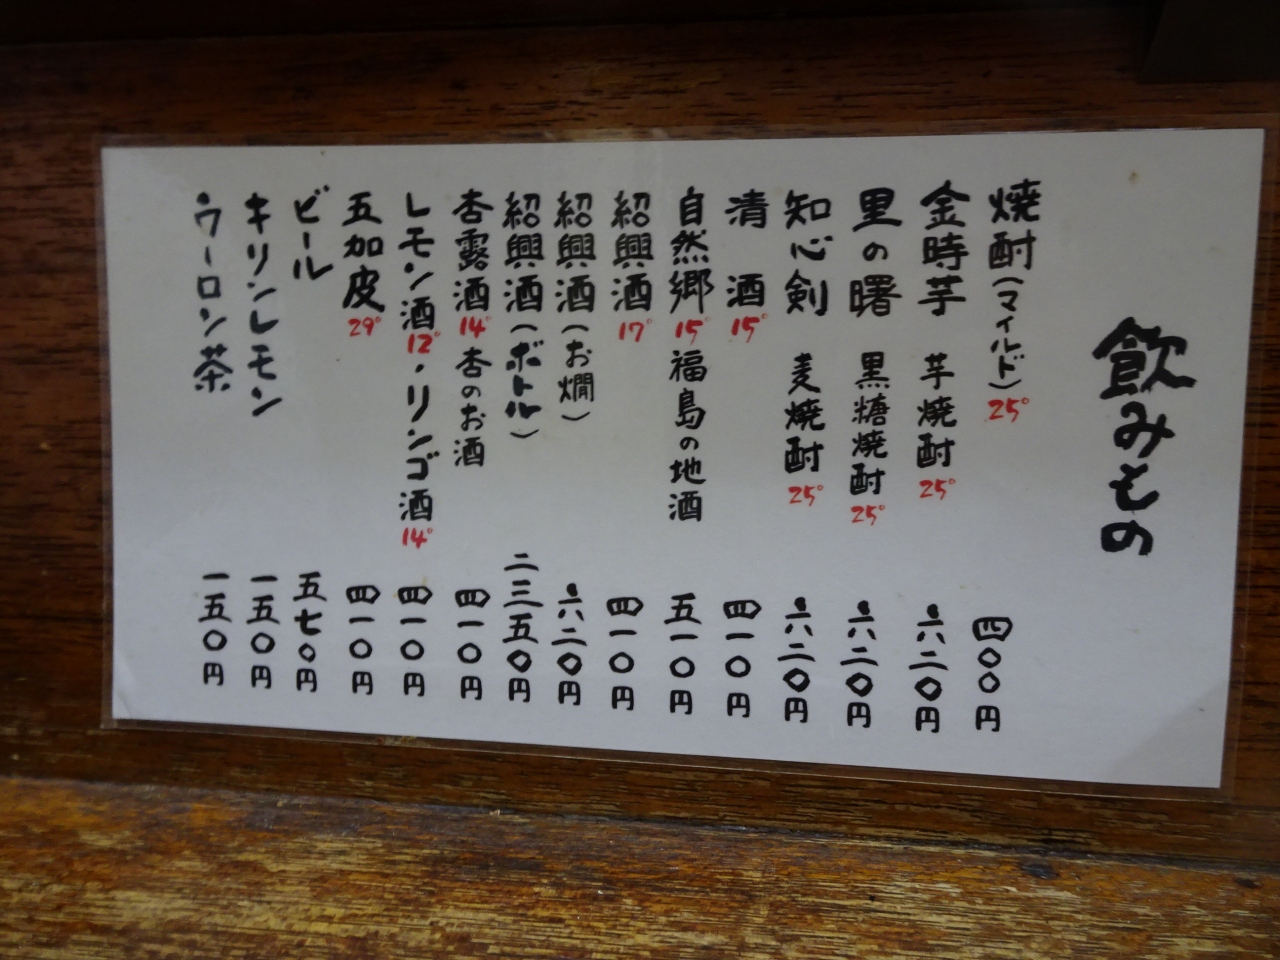 飲みもの
焼酎(マイルド)25° 四〇〇円
金時芋 芋焼酎25° 六二〇円
里の曙 黒糖焼酎25° 六二〇円
知心剣 麦焼酎25° 六二〇円
清酒15° 四一〇円
自然郷15° 福島の地酒 五一〇円
紹興酒17° 四一〇円
紹興酒(お燗) 六二〇円
紹興酒(ボトル) 二三五〇円
杏露酒14° 杏のお酒 四一〇円
レモン酒12°・リンゴ酒14° 四一〇円
五加皮29° 四一〇円
ビール 五七〇円
キリンレモン 一五〇円
ウーロン茶 一五〇円